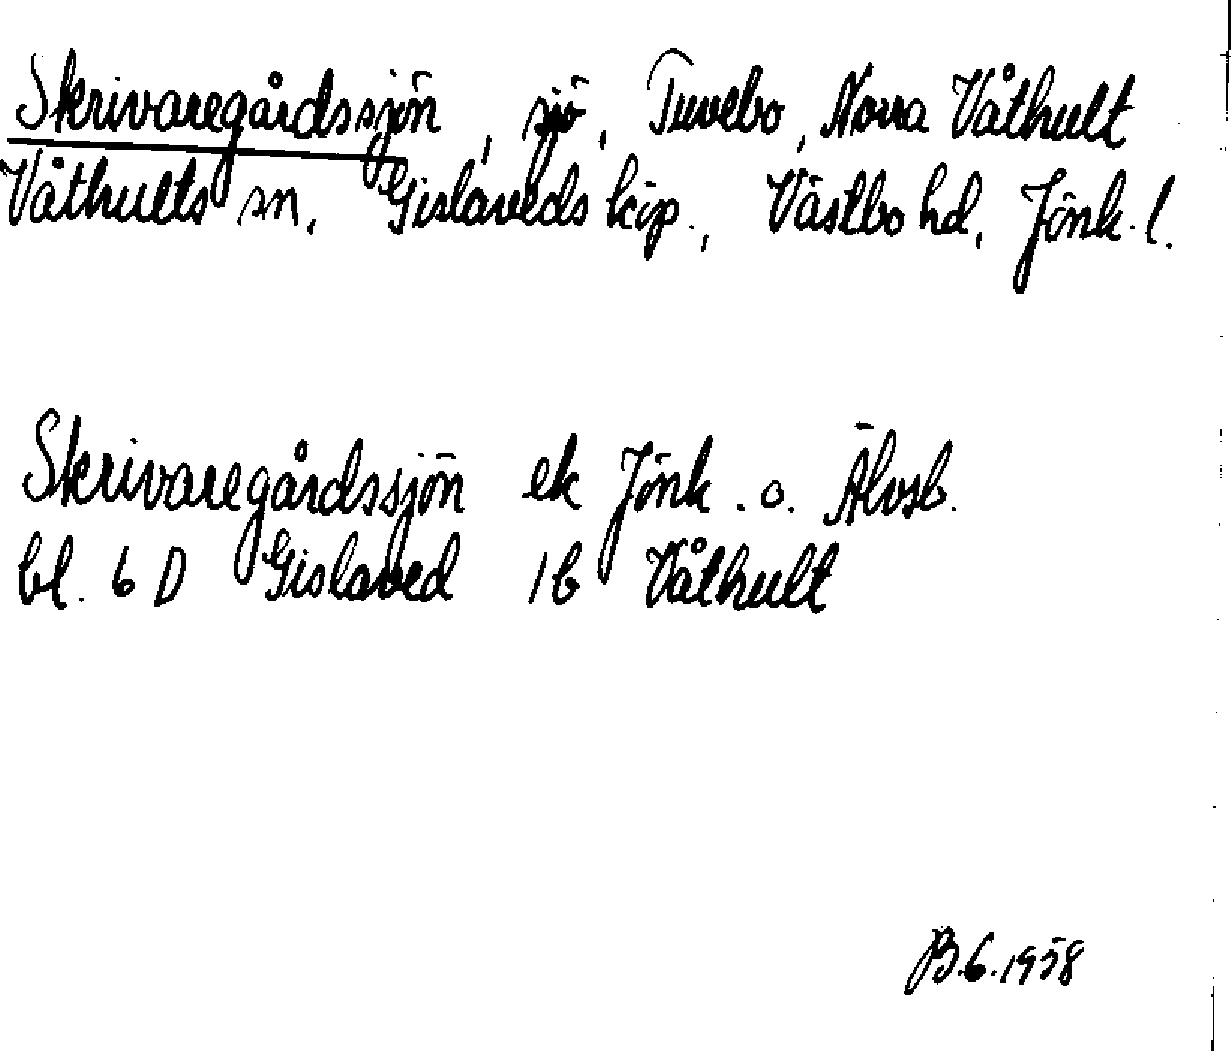 Skrivaregårdssjön, sjö, Tuvebo, Norra Våthult
Våthults sn, Gislaveds köp., Västbo hd, Jönk. l.
Skrivaregårdssjön ek Jönk. o. Älvsb.
bl. 6 D Gislaved 1b Våthult
B.G.1958